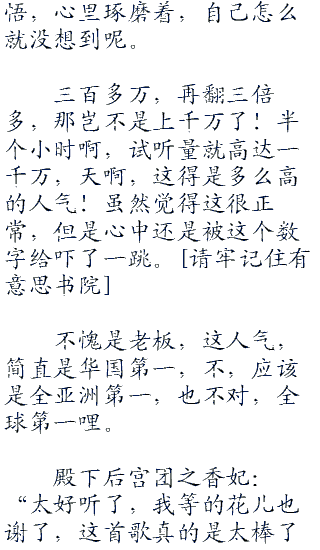 悟，心里琢磨着，自己怎么
就没想到呢。
三百多万，再翻三倍
多，那岂不是上千万了！半
个小时啊，试听量就高达一
千万，天啊，这得是多么高
的人气！虽然觉得这很正
常，但是心中还是被这个数
字给吓了一跳。[请牢记住有
意思书院]
不愧是老板，这人气，
简直是华国第一，不，应该
是全亚洲第一，也不对，全
球第一哩。
殿下后宫团之香妃：
“太好听了，我等的花儿也
谢了，这首歌真的是太棒了